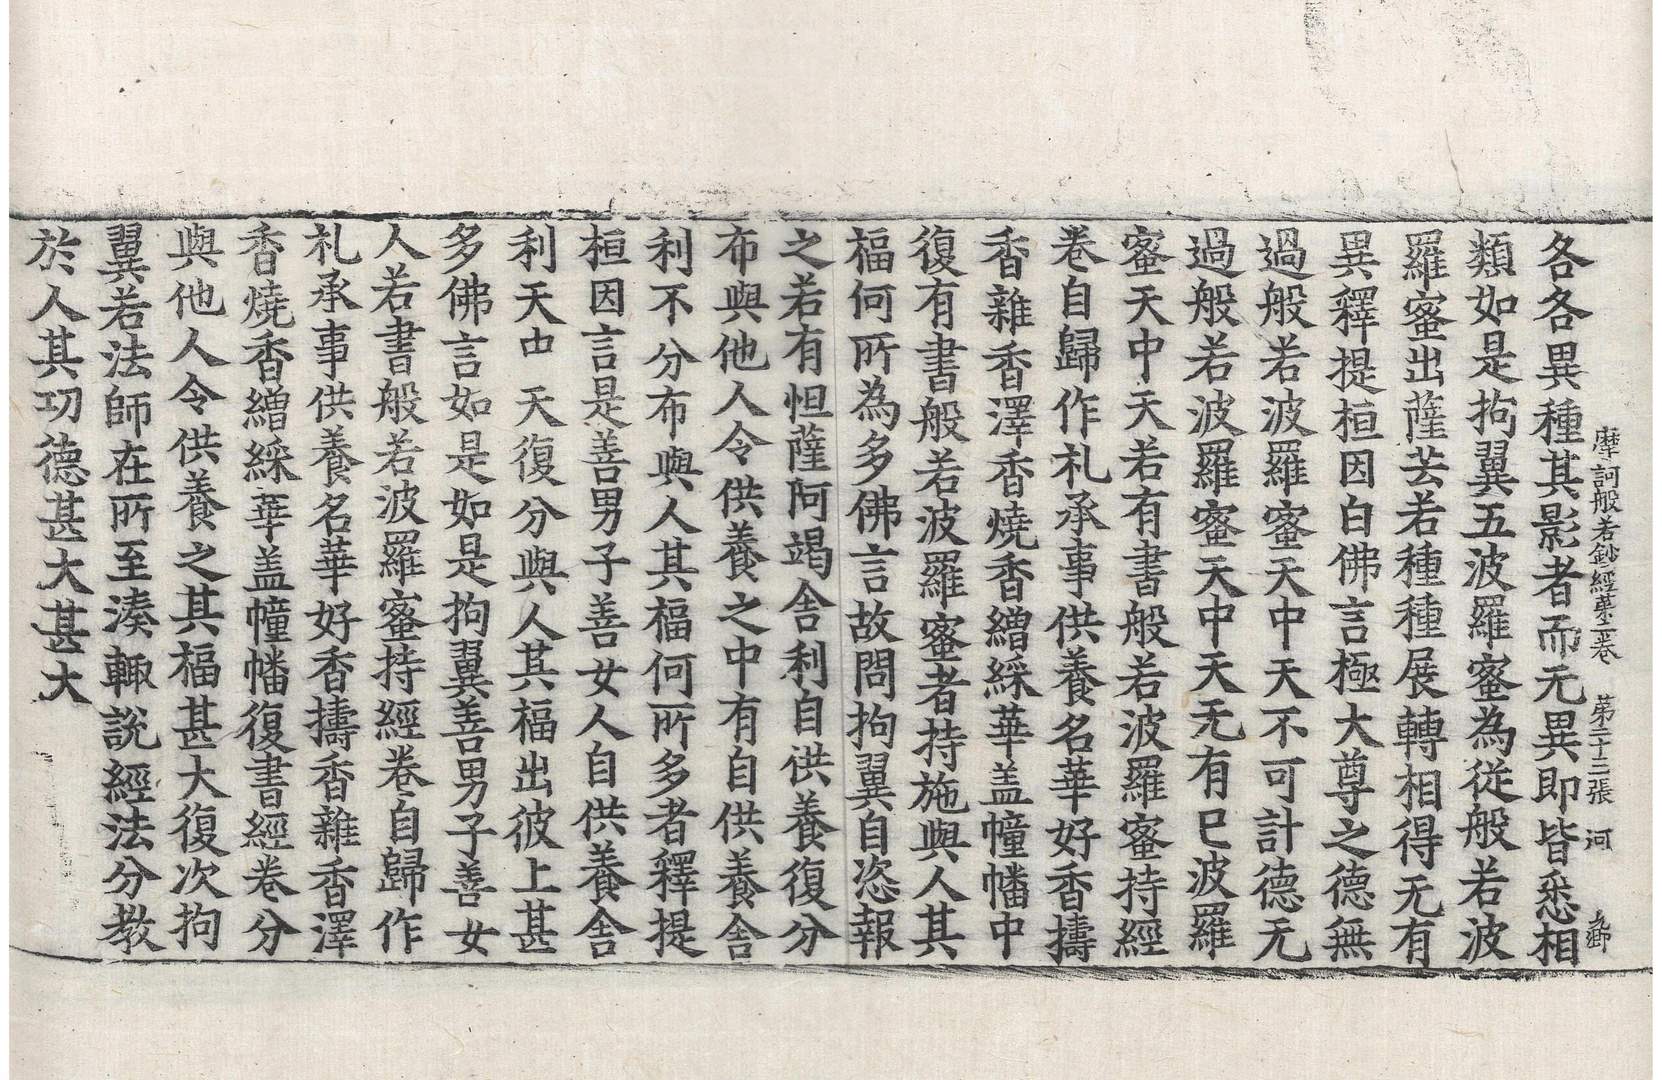 摩訶般若鈔經第二卷　第二十二張　河
各各異種其影者而无異即皆悉相
類如是拘翼五波羅蜜為從般若波
羅蜜出薩芸若種種展轉相得无有
異釋提桓因白佛言極大尊之德無
過般若波羅蜜天中天不可計德无
過般若波羅蜜天中天无有巳波羅
蜜天中天若有書般若波羅蜜持經
卷自歸作礼承事供養名華好香擣
香雜香澤香燒香繒綵華盖幢幡中
復有書般若波羅蜜者持施與人其
福何所為多佛言故問拘翼自恣報
之若有怛薩阿竭舍利自供養復分
布與他人令供養之中有自供養舍
利不分布與人其福何所多者釋提
桓因言是善男子善女人自供養舍
利天中天復分與人其福出彼上甚
多佛言如是如是拘翼善男子善女
人若書般若波羅蜜持經卷自歸作
礼承事供養名華好香擣香雜香澤
香燒香繒綵華盖幢幡復書經卷分
與他人令供養之其福甚大復次拘
翼若法師在所至湊輙說經法分教
於人其功德甚大甚大